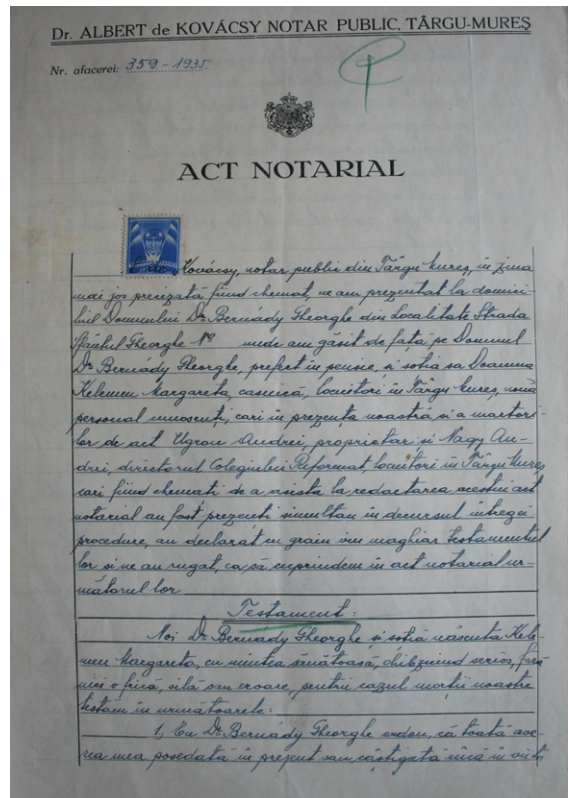 Dr. ALBERT de KOVÁCSY NOTAR PUBLIC, TÂRGU-MUREȘ
Nr. afacerei: 359 - 1935.
ACT NOTARIAL
Kovácsy, notar public din Târgu Mureș, în ziua
mai jos prerezată fiind chemat, ne am prezentat la domici-
liul Domnului Dr Bernády Gheorghe din Localitate Strada
Sfântul Gheorghe No unde am găsit de față pe Domnul
Dr Bernády Gheorghe, prefect în pensie, și soția sa Doamna
Kelemen Margareta, casnică, locuitori în Târgu Mureș, nouă
personal cunoscuți, cari în prezența noastră și a martori-
lor de act Ugron Andrei, proprietar și Nagy An-
drei, directorul Colegiului Reformat, locuitori în Târgu Mureș
cari fiind chemați de a asista la redactarea acestui act
notarial au fost prezenți simultan în decursul întregei
procedure, au declarat cu graiu viu maghiar testamentul
lor și ne au rugat, ca să cuprindem în act notarial ur-
mătorul lor
Testament:
Noi Dr Bernády Gheorghe și soția născuta Kele-
men Margareta, cu mintea sănătoasă, chibzuind serios, fără
nici o frică, silă sau eroare, pentru cazul morții noastre
testăm în următoarele:
1, Eu Dr Bernády Gheorghe ordon, că toată ave-
rea mea posedată în prezent sau câștigată încă în